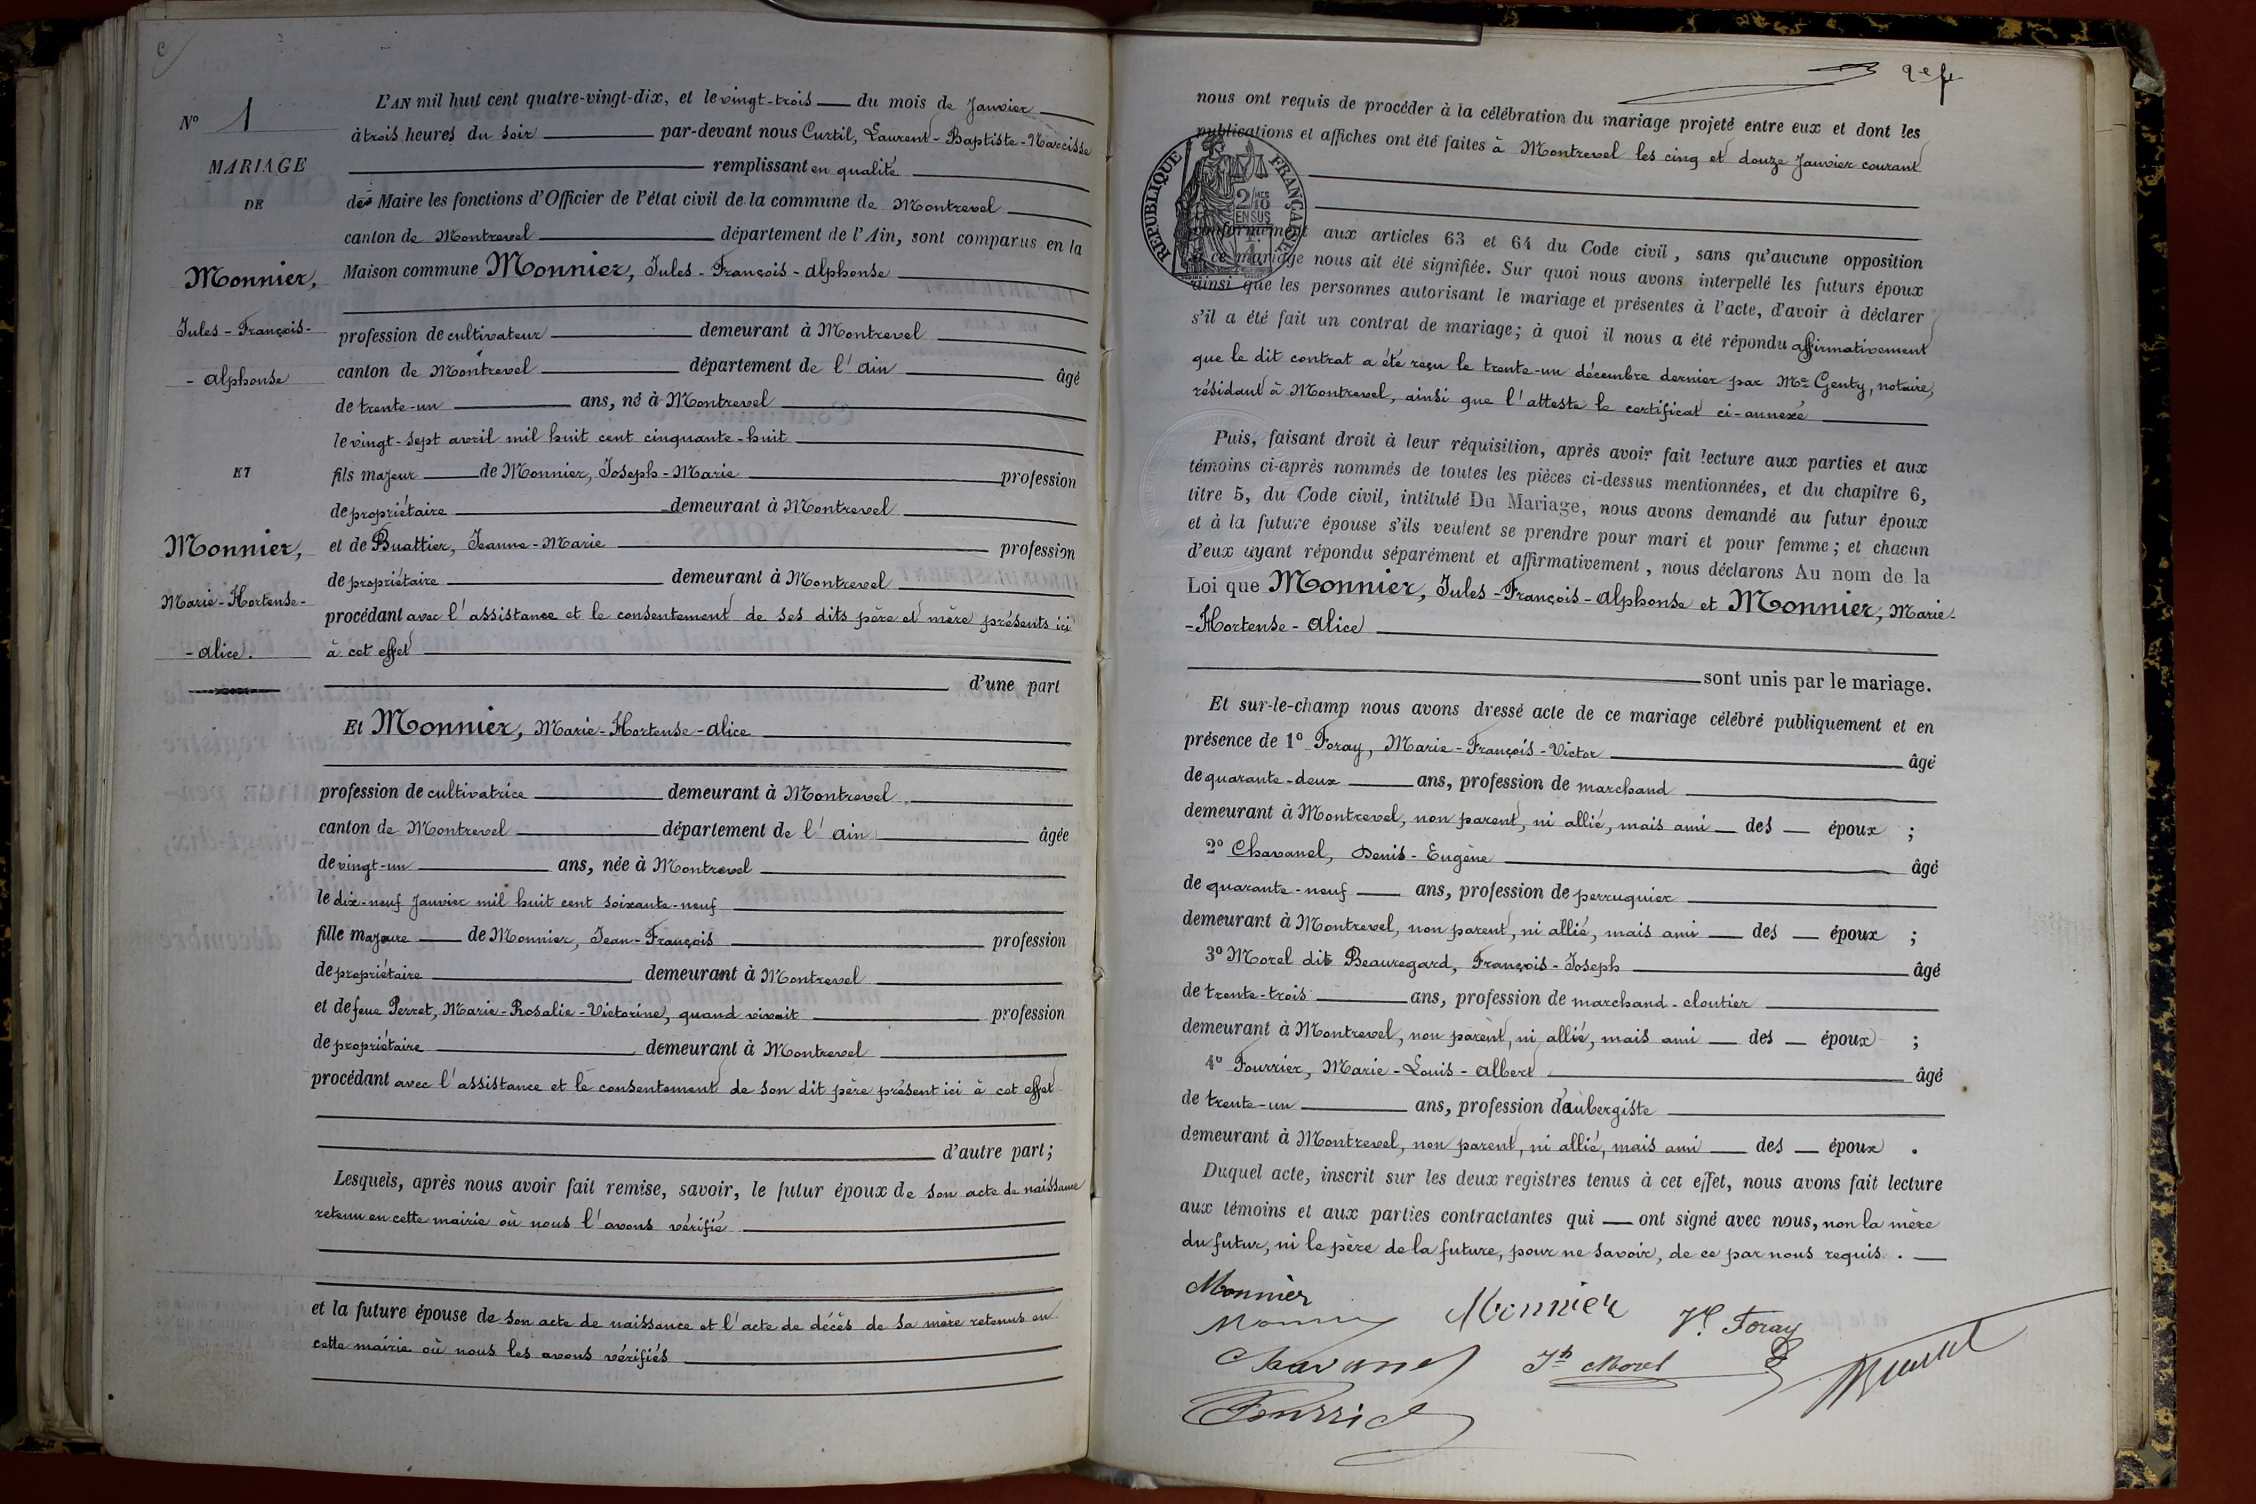 N° 1
MARIAGE
DE
Monnier,
Jules-François-
-Alphonse
ET
Monnier,
Marie-Hortense-
-Alice.
L'AN mil huit cent quatre-vingt-dix, et le vingt-trois du mois de Janvier
à trois heures du soir par-devant nous Curtil, Laurent-Baptiste-Narcisse
remplissant en qualité
de Maire les fonctions d'Officier de l'état civil de la commune de Montrevel
canton de Montrevel département de l'Ain, sont comparus en la
Maison commune Monnier, Jules-François-Alphonse
profession de cultivateur demeurant à Montrevel
canton de Montrevel département de l'Ain âgé
de trente-un ans, né à Montrevel
le vingt-sept avril mil huit cent cinquante-huit
fils majeur de Monnier, Joseph-Marie profession
de propriétaire demeurant à Montrevel
et de Buattier, Jeanne-Marie profession
de propriétaire demeurant à Montrevel
procédant avec l'assistance et le consentement de ses dits père et mère présents ici
à cet effet
d'une part
Et Monnier, Marie-Hortense-Alice
profession de cultivatrice demeurant à Montrevel
canton de Montrevel département de l'Ain âgée
de vingt-un ans, née à Montrevel
le dix-neuf Janvier mil huit cent soixante-neuf
fille majeure de Monnier, Jean-François profession
de propriétaire demeurant à Montrevel
et de feue Perret, Marie-Rosalie-Victorine, quand vivait profession
de propriétaire demeurant à Montrevel
procédant avec l'assistance et le consentement de son dit père présent ici à cet effet
d'autre part;
Lesquels, après nous avoir fait remise, savoir, le futur époux de son acte de naissance
retenu en cette mairie où nous l'avons vérifié
et la future épouse de son acte de naissance et l'acte de décès de sa mère retenus en
cette mairie où nous les avons vérifiés
nous ont requis de procéder à la célébration du mariage projeté entre eux et dont les
publications et affiches ont été faites à Montrevel les cinq et douze Janvier courant
REPUBLIQUE FRANÇAISE
2/10
EN SUS
conformément aux articles 63 et 64 du Code civil, sans qu'aucune opposition
à ce mariage nous ait été signifiée. Sur quoi nous avons interpellé les futurs époux
ainsi que les personnes autorisant le mariage et présentes à l'acte, d'avoir à déclarer
s'il a été fait un contrat de mariage; à quoi il nous a été répondu affirmativement
que le dit contrat a été reçu le trente-un décembre dernier par Me Genty, notaire,
résidant à Montrevel, ainsi que l'atteste le certificat ci-annexé
Puis, faisant droit à leur réquisition, après avoir fait lecture aux parties et aux
témoins ci-après nommés de toutes les pièces ci-dessus mentionnées, et du chapitre 6,
titre 5, du Code civil, intitulé Du Mariage, nous avons demandé au futur époux
et à la future épouse s'ils veulent se prendre pour mari et pour femme; et chacun
d'eux ayant répondu séparément et affirmativement, nous déclarons Au nom de la
Loi que Monnier, Jules-François-Alphonse et Monnier, Marie-
-Hortense-Alice
sont unis par le mariage.
Et sur-le-champ nous avons dressé acte de ce mariage célébré publiquement et en
présence de 1° Foray, Marie-François-Victor âgé
de quarante-deux ans, profession de marchand
demeurant à Montrevel, non parent, ni allié, mais ami des époux ;
2° Chavanel, Denis-Eugène âgé
de quarante-neuf ans, profession de perruquier
demeurant à Montrevel, non parent, ni allié, mais ami des époux ;
3° Morel dit Beauregard, François-Joseph âgé
de trente-trois ans, profession de marchand-cloutier
demeurant à Montrevel, non parent, ni allié, mais ami des époux ;
4° Fourrier, Marie-Louis-Albert âgé
de trente-un ans, profession d'aubergiste
demeurant à Montrevel, non parent, ni allié, mais ami des époux .
Duquel acte, inscrit sur les deux registres tenus à cet effet, nous avons fait lecture
aux témoins et aux parties contractantes qui ont signé avec nous, non la mère
du futur, ni le père de la future, pour ne savoir, de ce par nous requis.
Monnier
Monnier Monnier Vr Foray
Chavanel Jh Morel
Fourrier